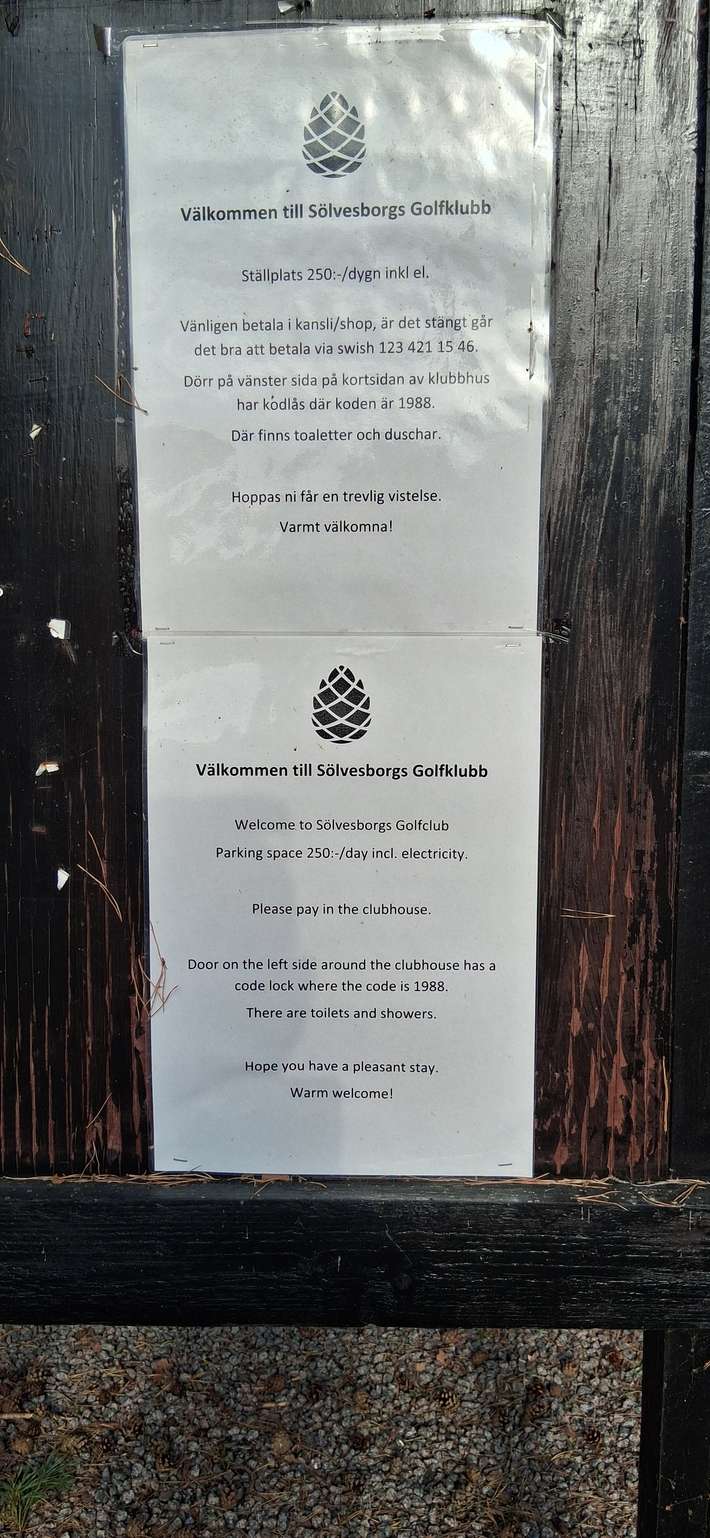 Välkommen till Sölvesborgs Golfklubb
Ställplats 250:-/dygn inkl el.
Vänligen betala i kansli/shop, är det stängt går
det bra att betala via swish 123 421 15 46.
Dörr på vänster sida på kortsidan av klubbhus
har kodlås där koden är 1988.
Där finns toaletter och duschar.
Hoppas ni får en trevlig vistelse.
Varmt välkomna!
Välkommen till Sölvesborgs Golfklubb
Welcome to Sölvesborgs Golfclub
Parking space 250:-/day incl. electricity.
Please pay in the clubhouse.
Door on the left side around the clubhouse has a
code lock where the code is 1988.
There are toilets and showers.
Hope you have a pleasant stay.
Warm welcome!